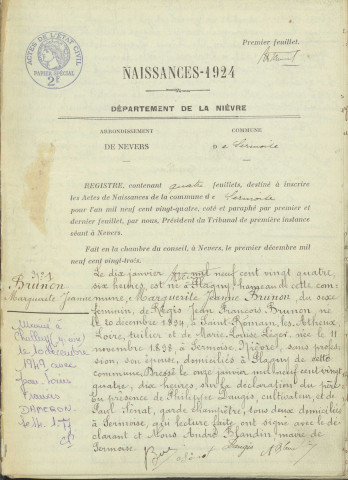 Premier feuillet.
ACTES DE L'ETAT CIVIL
PAPIER SPÉCIAL
2F
NAISSANCES-1924
DÉPARTEMENT DE LA NIÈVRE
ARRONDISSEMENT
COMMUNE
DE NEVERS
De Sermoise
REGISTRE, contenant quatre feuillets, destiné à inscrire
les Actes de Naissances de la commune de Sermoise
pour l'an mil neuf cent vingt-quatre, coté et paraphé par premier et
dernier feuillet, par nous, Président du Tribunal de première instance
séant à Nevers.
Fait en la chambre du conseil, à Nevers, le premier décembre mil
neuf cent vingt-trois.
N° 1
Brunon
Marguerite Jeanne
Le dix janvier mil neuf cent vingt quatre,
six heures, est née à Plagny hameau de cette com-
mune, Marguerite Jeanne Brunon, du sexe
féminin, de Régis Jean François Brunon né
le 20 décembre 1897, à Saint-Romain, les Atheux
Loire, tuilier et de Marie Louise Léger, née le 11
novembre 1898, à Sermoise, Nièvre, sans profes-
sion, son épouse, domiciliés à Plagny de cette
commune. Dressé le onze janvier mil neuf cent vingt
quatre, dix heures, sur la déclaration du père
En présence de Philippe Dangis, cultivateur, et de
Paul Sénat, garde champêtre, tous deux domiciliés
à Sermoise, qui, lecture faite, ont signé avec le dé-
clarant et Nous, André Blandin maire de
Sermoise.
Mariée à
le
1949 avec
Jean Louis
DAMERON